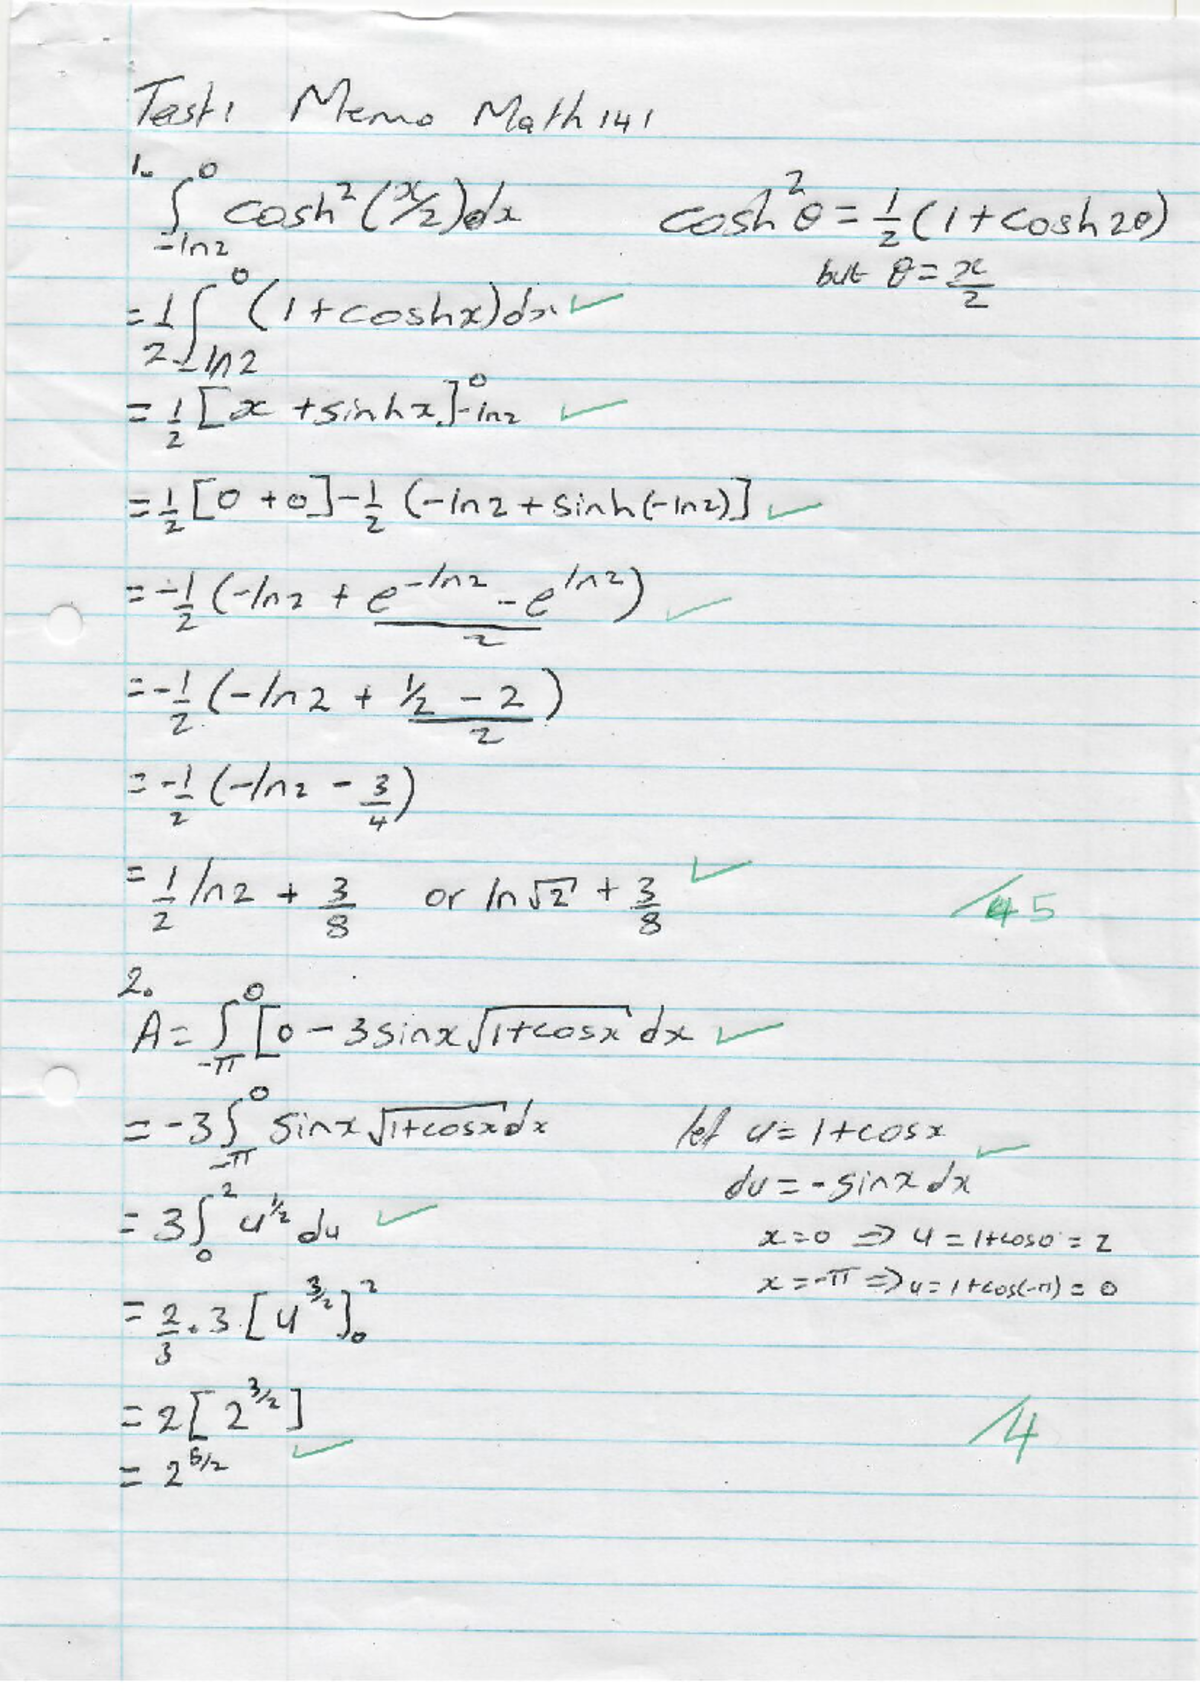 Test 1 Memo Math 141
1. ∫_{-ln2}^{0} cosh²(x/2)dx cosh²θ = 1/2(1+cosh2θ)
but θ = x/2
= 1/2 ∫_{-ln2}^{0} (1+coshx)dx ✓
= 1/2 [x + sinhx]_{-ln2}^{0} ✓
= 1/2 [0 + 0] - 1/2 (-ln2 + sinh(-ln2)] ✓
= -1/2 (-ln2 + (e^{-ln2} - e^{ln2})/2) ✓
= -1/2 (-ln2 + (1/2 - 2)/2)
= -1/2 (-ln2 - 3/4)
= 1/2 ln2 + 3/8 or ln√2 + 3/8 ✓ /5
2.
A = ∫_{-π}^{0} [0 - 3sinx√(1+cosx) dx ✓
= -3∫_{-π}^{0} sinx√(1+cosx)dx let u = 1+cosx ✓
du = -sinx dx
= 3∫_{0}^{2} u^{1/2} du ✓ x=0 ⇒ u = 1+cos0 = 2
x = -π ⇒ u = 1+cos(-π) = 0
= 2/3 . 3 [u^{3/2}]_{0}^{2}
= 2[2^{3/2}] /4
= 2^{5/2} ✓